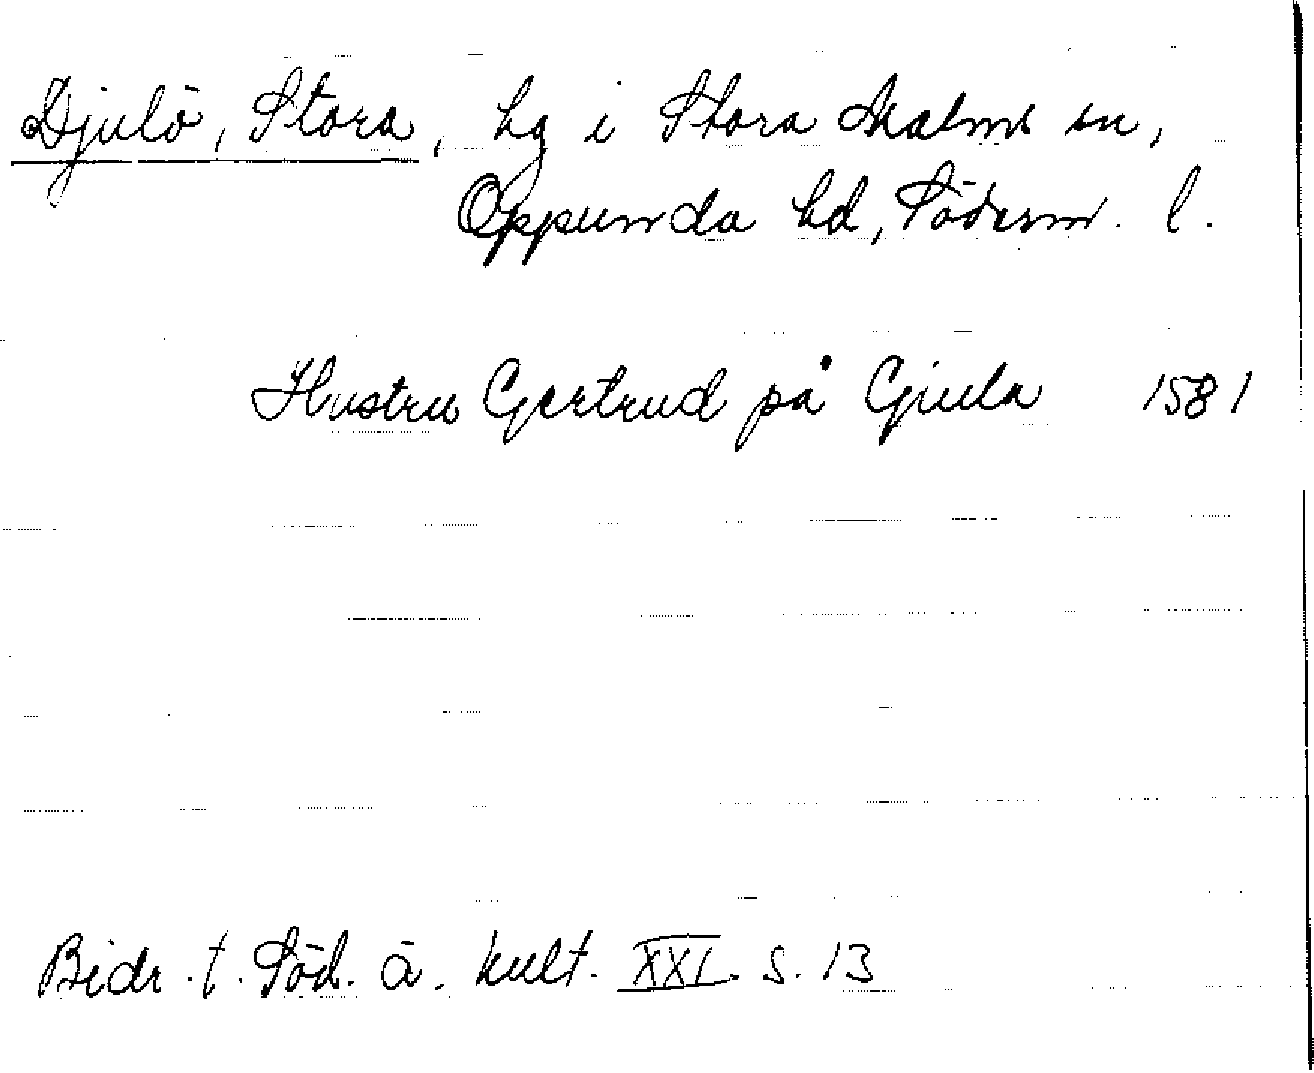 Djulö, Stora, hg i Stora Malms sn,
Oppunda hd, Söderm. l.
Hustru Gertrud på Giula 1581
Bidr. t. Söd. ä. kult. XXI. s. 13